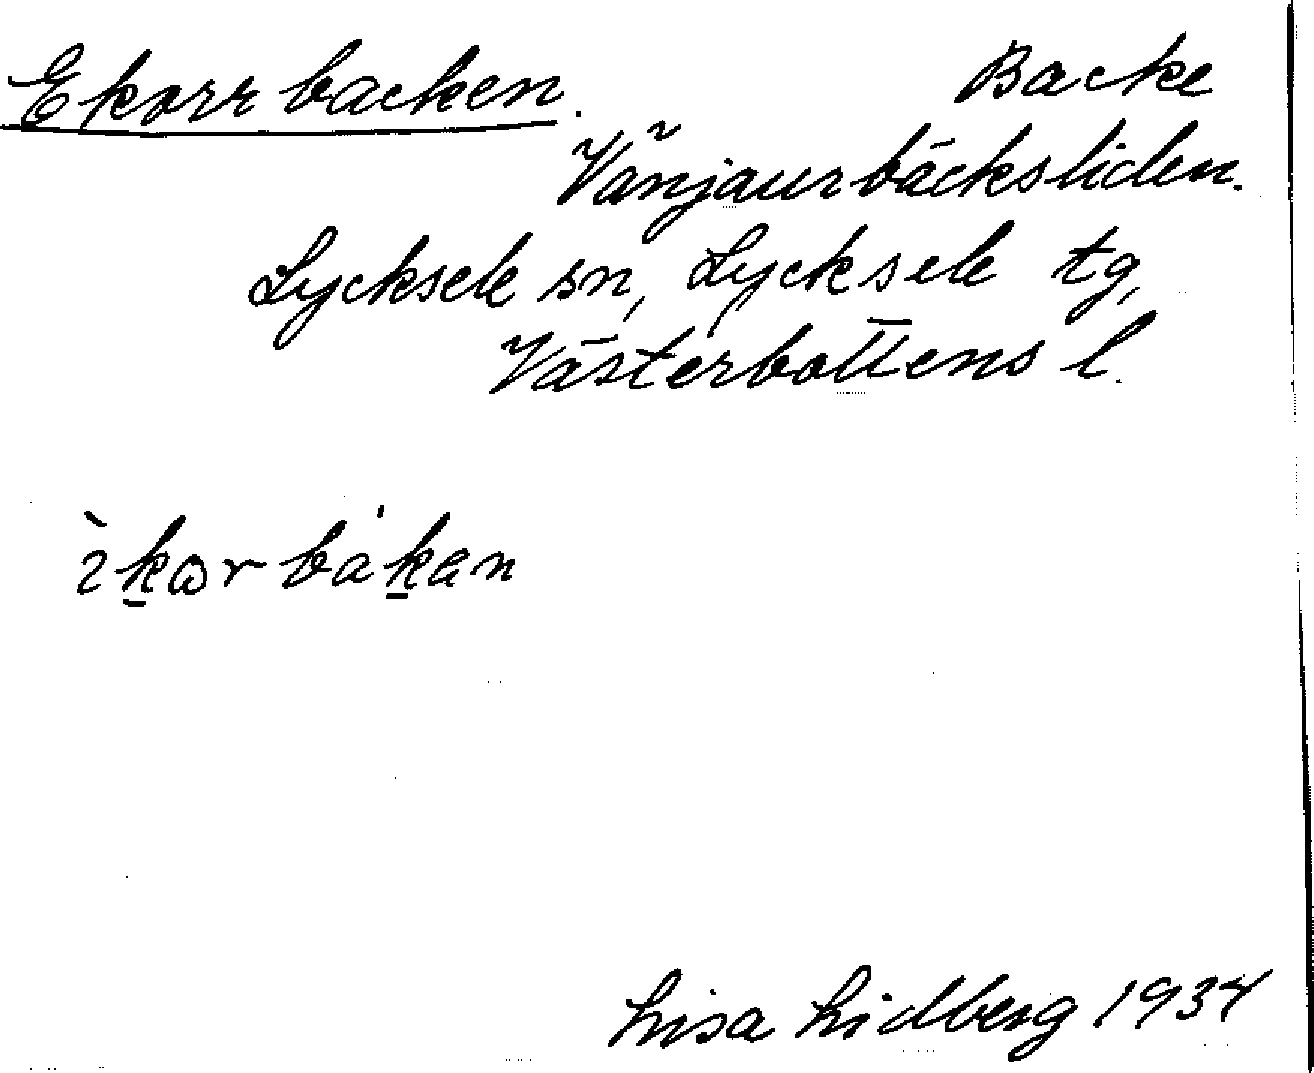 Ekorrbacken. Backe
Vänjaurbäcksliden.
Lycksele sn, Lycksele tg,
Västerbottens l.
Lisa Lidberg 1934